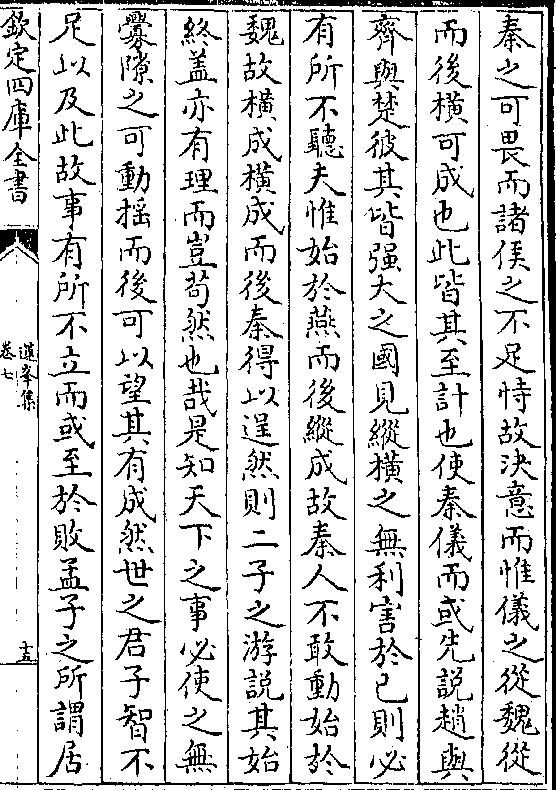 秦之可畏而諸侯之不足恃故決意而惟儀之從魏從
而後橫可成也此皆其至計也使秦儀而或先說趙與
齊與楚彼其皆强大之國見縱橫之無利害於已則必
有所不聽夫惟始於燕而後縱成故秦人不敢動始於
魏故橫成橫成而後秦得以逞然則二子之游說其始
終盖亦有理而豈苟然也哉是知天下之事必使之無
釁隙之可動揺而後可以望其有成然世之君子智不
足以及此故事有所不立而或至於敗孟子之所謂居
欽定四庫全書
蓮峯集
卷七
十五